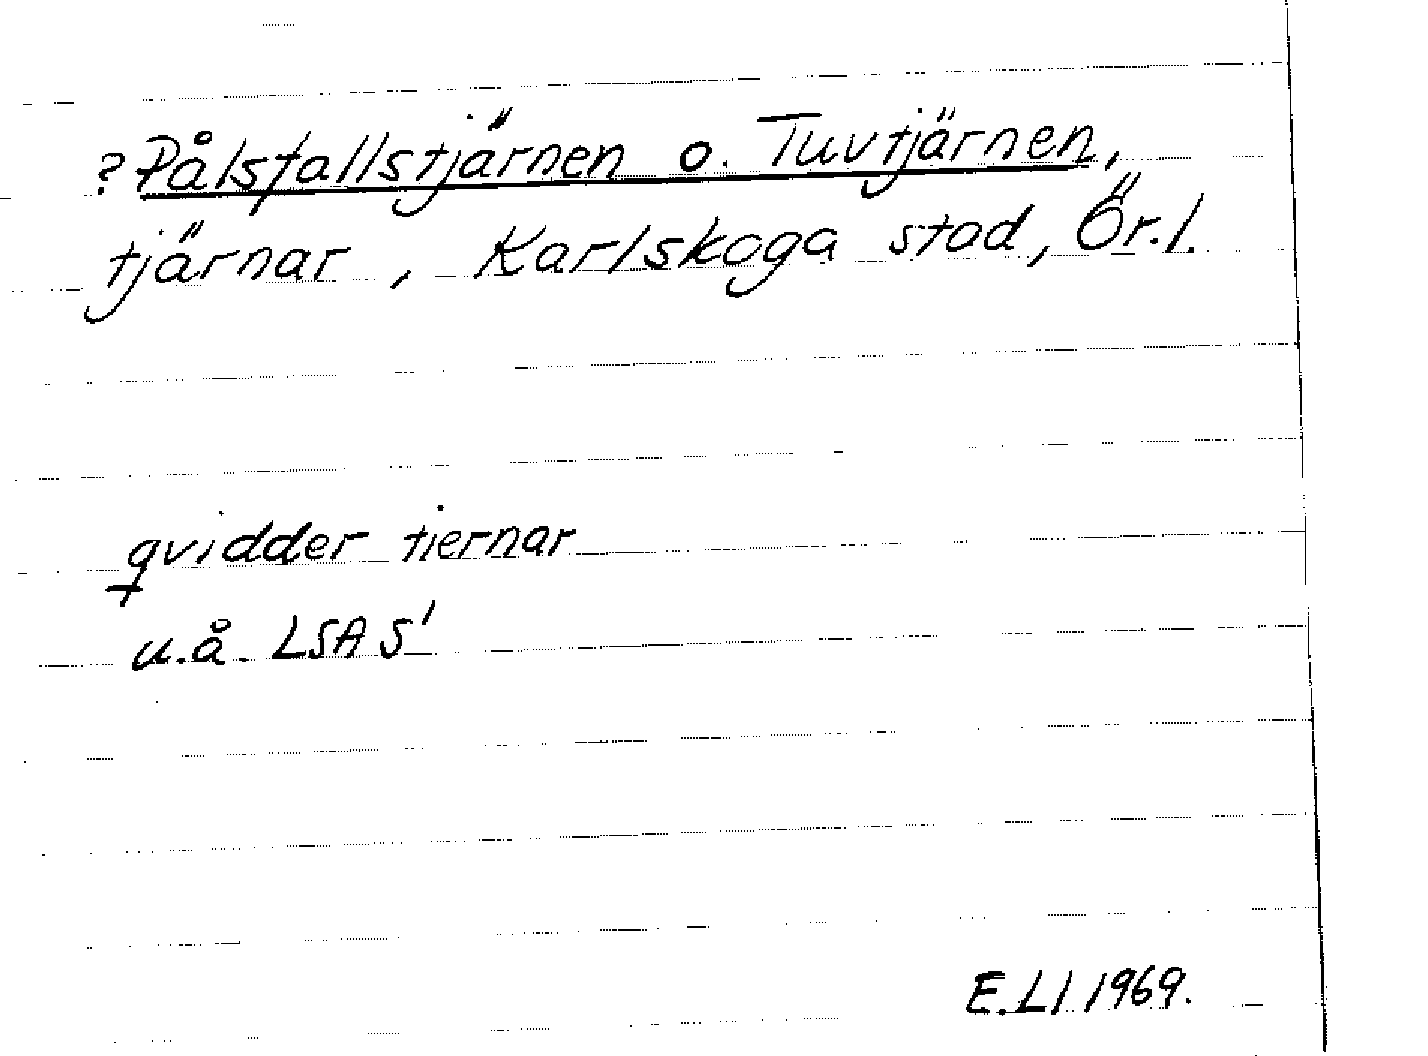 ?Pålsfallstjärnen o. Tuvtjärnen,
tjärnar, Karlskoga stad, Ör.l.
qvidder tiernar
u.å. LSA S1
E.Ll 1969.